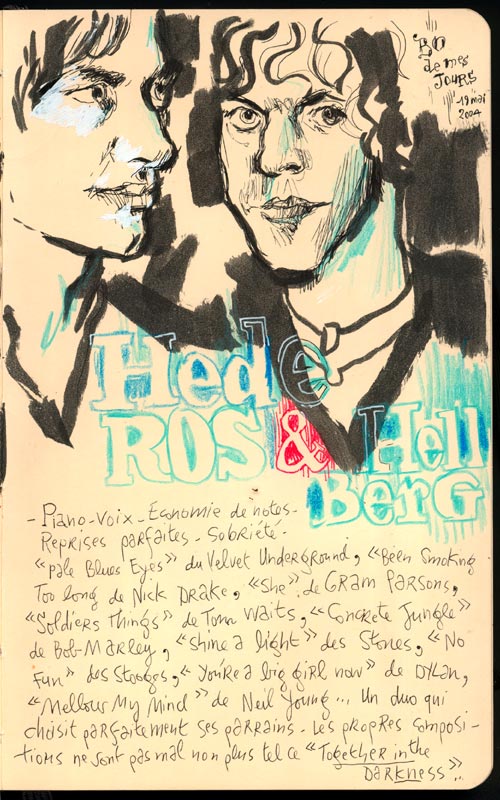 BO
de mes
JOURS
19 mai
2004
Hede
ROS & Hell
BerG
- Piano-Voix - Economie de notes -
Reprises parfaites - Sobriété -
"pale Blues Eyes" du Velvet Underground, "Been Smoking
Too long de Nick DRAKE, "She" de GRAM PARSONS,
"Soldiers Things" de Tom Waits, "Concrete Jungle"
de Bob-MARLEY, "Shine a light" des Stones, "No
Fun" des Stooges, "You're a big girl now" de DYLAN,
"Mellow My Mind" de Neil Young... Un duo qui
choisit parfaitement ses parrains. Les propres composi-
tions ne sont pas mal non plus tel ce "Together in the
DARKNESS"...